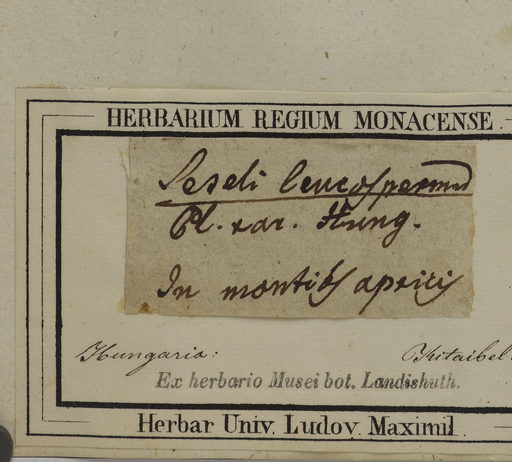 HERBARIUM REGIUM MONACENSE.
Seseli leucospermum
Pl. rar. Hung.
In montib apricis
Hungaria: Kitaibel.
Ex herbario Musei bot. Landishuth.
Herbar Univ. Ludov. Maximil.